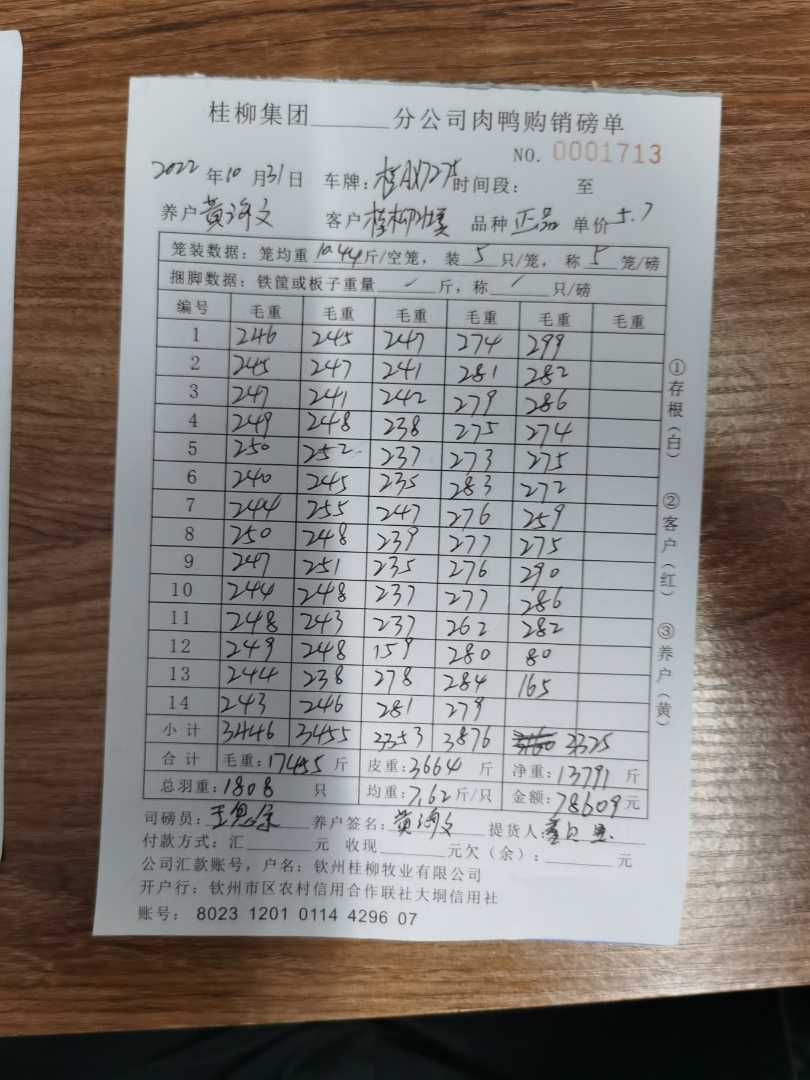 桂柳集团______分公司肉鸭购销磅单
NO. 0001713
2022年10月31日 车牌: 时间段: 至
养户 黄 文 客户 桂柳 品种 正品 单价 5.7
笼装数据: 笼均重 10.44 斤/空笼, 装 5 只/笼, 称 5 笼/磅
捆脚数据: 铁筐或板子重量 / 斤, 称 / 只/磅
编号 毛重 毛重 毛重 毛重 毛重 毛重
1 246 245 247 274 299
2 245 247 241 281 282
3 247 241 242 279 286
4 249 248 238 275 274
5 250 252 237 273 275
6 240 245 235 283 272
7 244 255 247 276 259
8 250 248 239 277 275
9 247 251 235 276 290
10 244 248 237 277 286
11 248 243 237 262 282
12 249 248 159 280 80
13 244 238 278 284 165
14 243 246 281 279
小计 3446 3455 3353 3876 3325
合计 毛重: 17455 斤 皮重: 3664 斤 净重: 13791 斤
总羽重: 1808 只 均重: 7.62 斤/只 金额: 78609 元
司磅员: 王 养户签名: 黄 文 提货人:
付款方式: 汇______元 收现______元欠(余):______元
公司汇款账号, 户名: 钦州桂柳牧业有限公司
开户行: 钦州市区农村信用合作联社大垌信用社
账号: 8023 1201 0114 4296 07
①存根(白) ②客户(红) ③养户(黄)